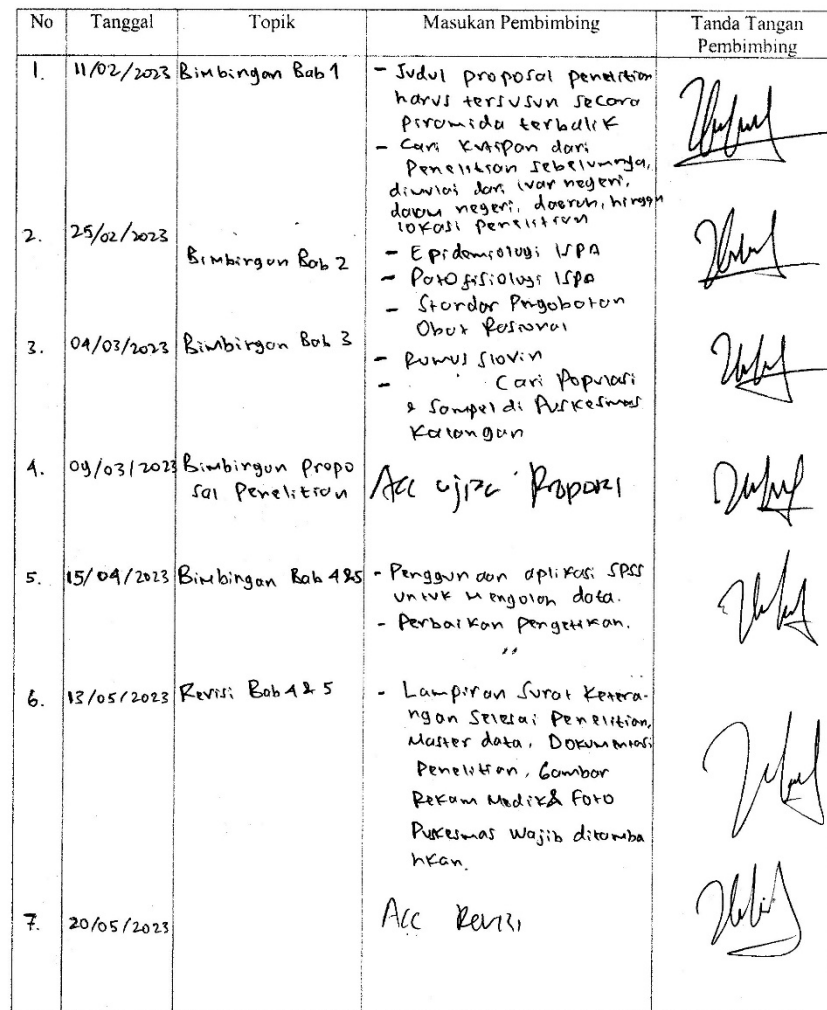 No Tanggal Topik Masukan Pembimbing Tanda Tangan
Pembimbing
1. 11/02/2023 Bimbingan Bab 1 - Judul proposal penelitian
harus tersusun secara
piramida terbalik
- Cari kutipan dari
Penelitian sebelumnya,
dimulai dari luar negeri,
dalam negeri, daerah, hingga
lokasi penelitian
2. 25/02/2023
Bimbingan Bab 2 - Epidemiologi ISPA
- Patofisiologi ISPA
- Standar Pngobatan
Obat Rasional
3. 04/03/2023 Bimbingan Bab 3 - Rumus Slovin
- Cari Populasi
& Sampel di Puskesmas
Kalangan
4. 09/03/2023 Bimbingan Propo
sal Penelitian Acc ujian Proposal
5. 15/04/2023 Bimbingan Bab 4&5 - Penggunaan aplikasi SPSS
untuk Mengolah data.
- Perbaikan Pengetikan.
6. 13/05/2023 Revisi Bab 4 & 5 - Lampiran Surat Ketera-
ngan Selesai Penelitian,
Master data, Dokumentasi
Penelitian, Gambar
Rekam Medik & Foto
Puskesmas Wajib ditamba
hkan.
7. 20/05/2023 Acc Revisi